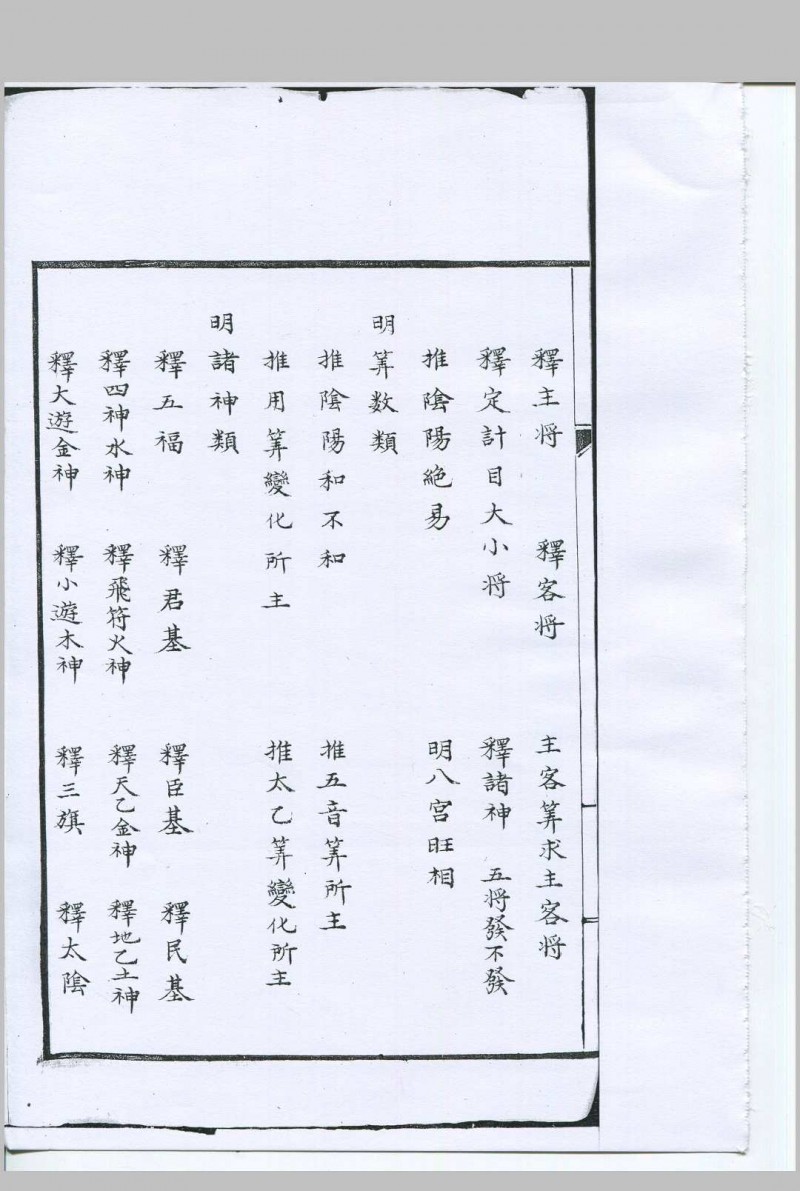 釋主将　釋客将　主客筭求主客将
釋定計目大小将　釋諸神　五将發不發
推陰陽絶易　明八宫旺相
明筭数類
推陰陽和不和　推五音筭所主
推用筭變化所主　推太乙筭變化所主
明諸神類
釋五福　釋君基　釋臣基　釋民基
釋四神水神　釋飛符火神　釋天乙金神　釋地乙土神
釋大遊金神　釋小遊木神　釋三旗　釋太陰